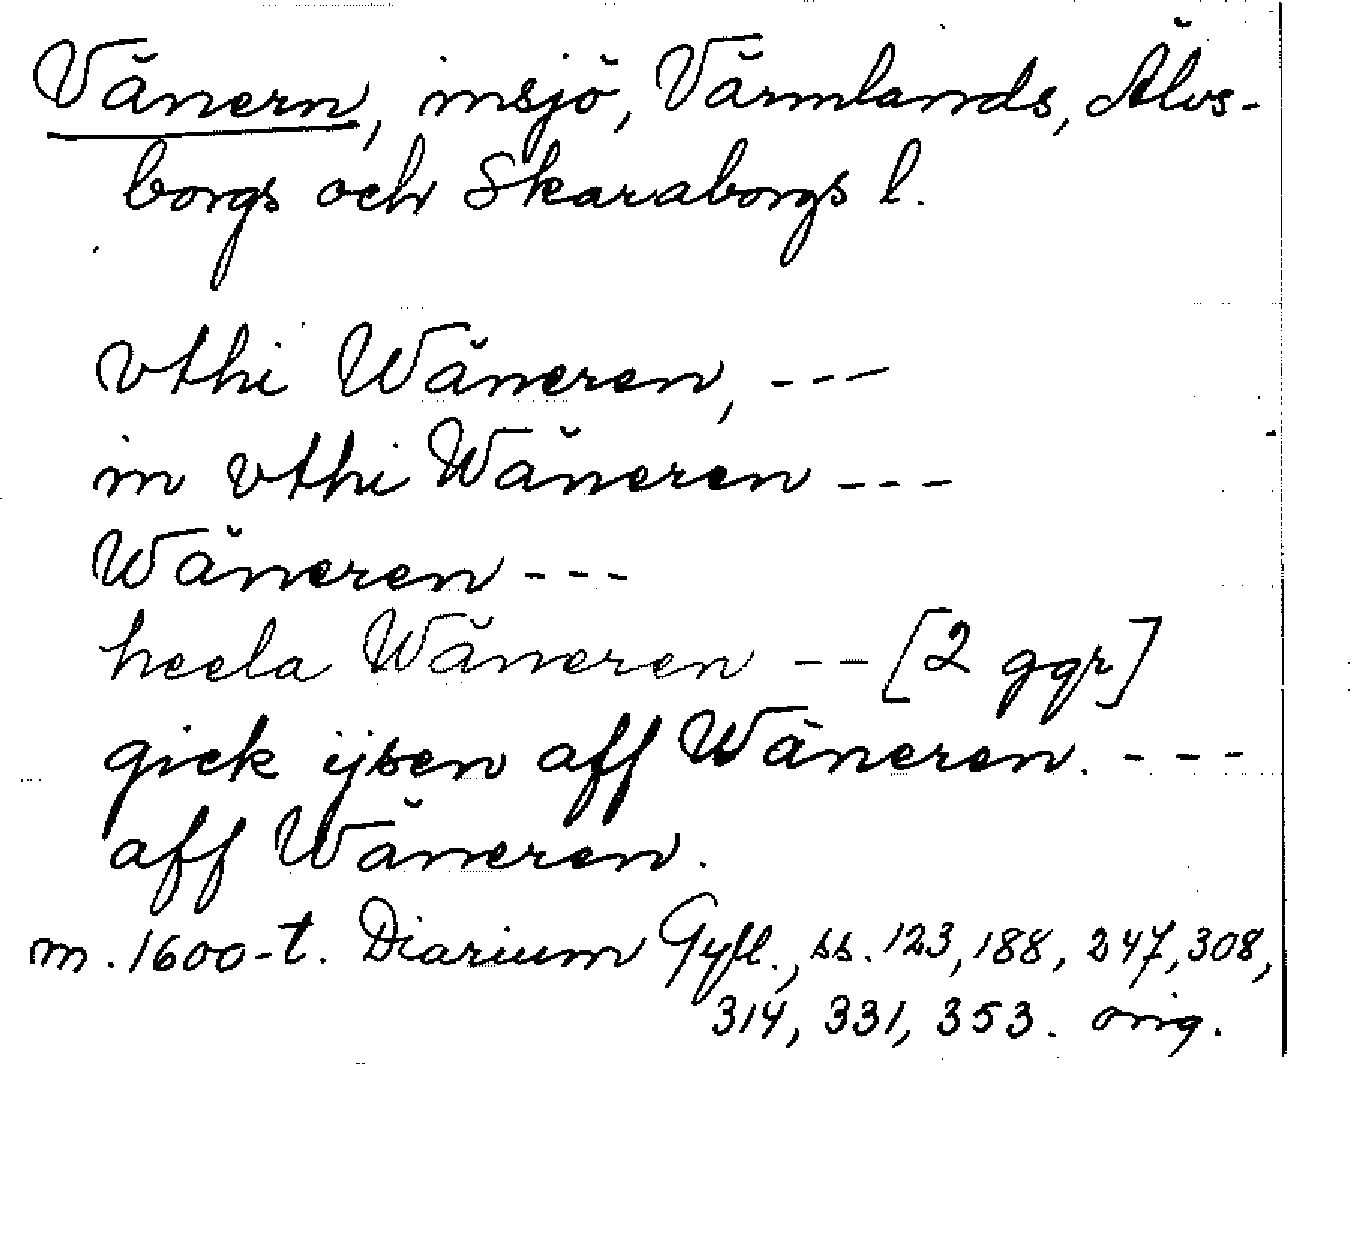 Vänern, insjö, Värmlands, Älvs-
borgs och Skaraborgs l.
vthi Wäneren, ---
in vthi Wäneren ---
Wäneren ---
heela Wäneren -- [2 ggr]
gick ijsen aff Wäneren. ---
aff Wäneren.
m. 1600-t. Diarium Gyll., ss. 123, 188, 247, 308,
314, 331, 353. orig.